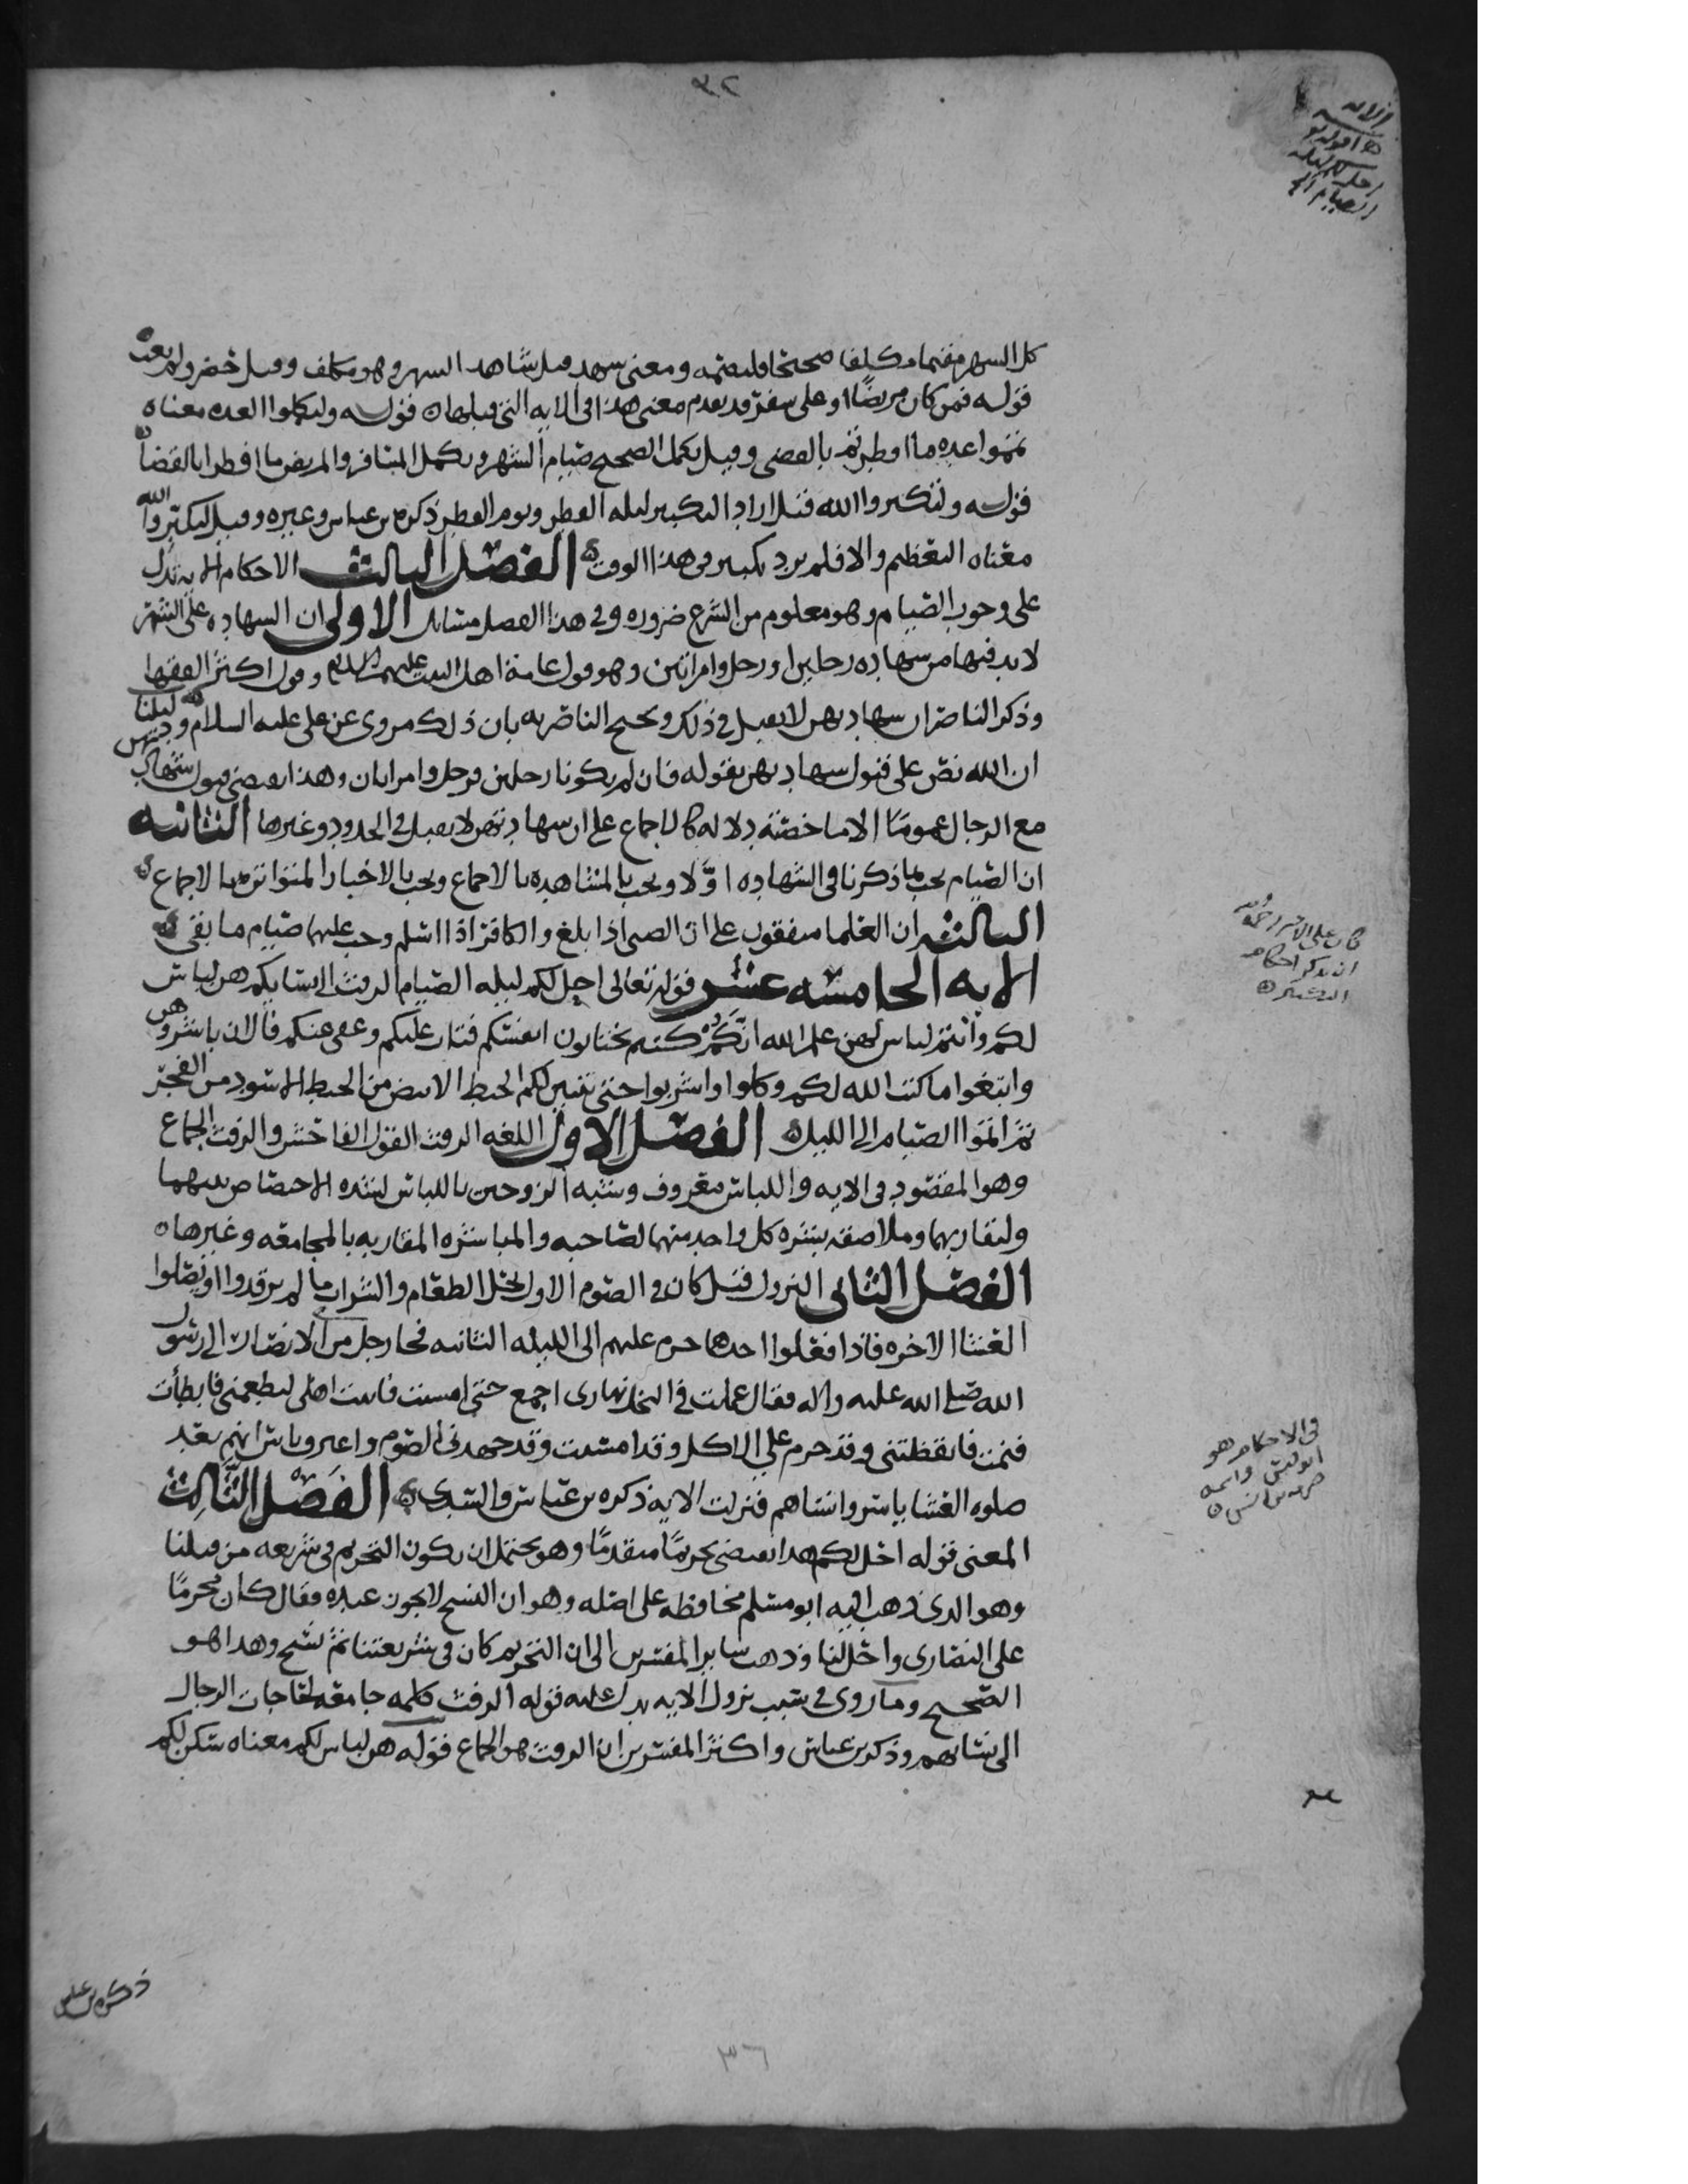 ٣٢
الايه
قوله
احل لكم ليله
الصيام الخ
كل الشهر مقيما مكلفا صحيحا فليصمه ومعنى شهد قيل شاهد الشهر وهو مكلف وقيل حضر ولم يغب
قوله فمن كان مريضًا او على سفر قد تقدم معنى هذا في الايه التي قبلها ه قوله ولتكملوا العده معناه
تتموا عده ما افطرتم بالقضى وقيل يكمل الصحيح صيام الشهر ويكمل المسافر والمريض ما افطرا بالقضا
قوله ولتكبروا الله قيل اراد التكبير ليله الفطر ويوم الفطر ذكره بن عباس وغيره وقيل لتكبروا الله
معناه التعظيم والا فلم يرد تكبير في هذا الوقت ه الفصل الثالث الاحكام الايه تدل
على وجوب الصيام وهو معلوم من الشرع ضروره وفي هذا الفصل مسايل الاولى ان الشهاده على الشهر
لا بد فيها من شهاده رجلين او رجل وامراتين وهو قول عامة اهل البيت عليهم السلام وقول اكثر الفقها
وذكر الناصر ان شهادتهن لا تقبل في ذلك ويحتج الناصريه بان ذلك مروى عن علي عليه السلام ودليلنا
ان الله نص على قبول شهادتهن بقوله فان لم يكونا رجلين فرجل وامراتان وهذا يقضى قبول شهادتهن
مع الرجال عمومًا الا ما خصته دلاله كالاجماع على ان شهادتهن لا تقبل في الحدود وغيرها الثانيه
ان الصيام يجب بما ذكرنا في الشهاده اوّلا ويجب بالمشاهده بالاجماع ويجب بالاخبار المتواتره بالاجماع ه
الثالثه ان العلما متفقون على ان الصبى اذا بلغ والكافر اذا اسلم وجب عليهما صيام ما بقى ه
الايه الخامسه عشر قوله تعالى احل لكم ليله الصيام الرفث الى نسايكم هن لباس
لكم وانتم لباس لهن علم الله انكم كنتم تختانون انفسكم فتاب عليكم وعفى عنكم فالان باشروهن
وابتغوا ما كتب الله لكم وكلوا واشربوا حتى يتبين لكم الخيط الابيض من الخيط الاسود من الفجر
ثم اتموا الصيام الى الليل ه الفصل الاول اللغه الرفث القول الفاحش والرفث الجماع
وهو المقصود في الايه واللباس معروف وشبه الزوجين باللباس لشده الاختصاص بينهما
ولتقاربهما وملاصقه بشره كل واحد منهما لصاحبه والمباشره المقاربه بالمجامعه وغيرها ه
الفصل الثانى النزول قيل كان في الصوم الاول يحل الطعام والشراب ما لم يرقدوا او يصلوا
العشا الاخره فاذا فعلوا احدهما حرم عليهم الى الليله الثانيه فجا رجل من الانصار الى رسول
الله صلى الله عليه واله فقال عملت في النخل نهارى اجمع حتى امسيت فاتيت اهلى لتطعمنى فابطأت
فنمت فايقظتنى وقد حرم علي الاكل وقد امسيت وقد جهدنى الصوم واعترف ناس انهم بعد
صلوه العشا باشروا نساهم فنزلت الايه ذكره بن عباس والسدي ه الفصل الثالث
المعنى قوله احل لكم هذا يقتضى تحريمًا متقدمًا وهو يحتمل ان يكون التحريم في شريعه من قبلنا
وهو الذى ذهب اليه ابو مسلم محافظه على اصله وهو ان النسخ لا يجوز عنده فقال كان محرمًا
على النصارى واحل لنا وذهب ساير المفسرين الى ان التحريم كان في شريعتنا ثم نسخ وهذا هو
الصحيح وما روى في سبب نزول الايه يدل عليه قوله الرفث كلمه جامعه لحاجات الرجال
الى نسايهم وذكر بن عباس واكثر المفسرين ان الرفث هو الجماع قوله هن لباس لكم معناه سكن لكم
كان على الامير رحمه الله
ان يذكر احكام
التكبير ه
في الاحكام هو
ابو قيس واسمه
صرمه بن انس ه
ذكره بن عباس
٣٦